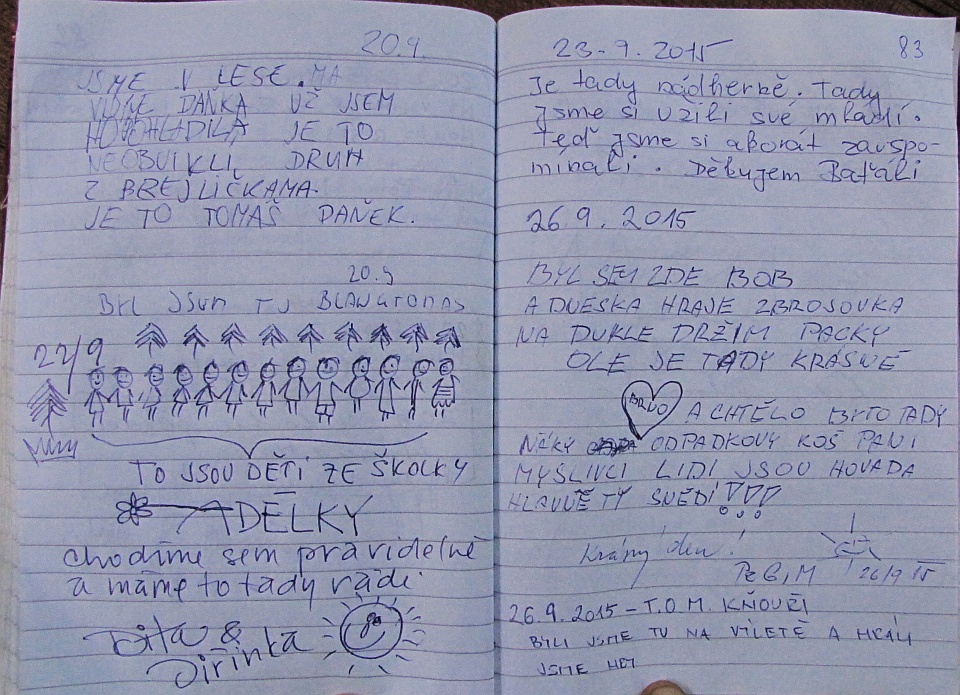 20.9.
JSME V LESE. MA
DAŇKA UŽ JSEM
JE TO
DRUH
Z BREJLIČKAMA.
JE TO TOMAŠ DAŇEK.
20.9
BYL JSEM TU
22/9
TO JSOU DĚTI ZE ŠKOLKY
ADĚLKY
chodíme sem pravidelně
a máme to tady rádi.
Dita &
Jiřinka
23-9.2015
83
Je tady nádherně. Tady
jsme si užili své mládí.
Teď jsme si akorát zavspo-
minali. Děkujem Baťáli
26.9.2015
BYL SEM ZDE BOB
A DNESKA HRAJE ZBROJOVKA
NA DUKLE DRŽIM PACKY
OLE JE TADY KRÁSNĚ
BRNO
A CHTĚLO BYTO TADY
NĚKY ODPADKOVY KOŠ PANI
MYSLIVCI LIDI JSOU HOVADA
HLAVNĚ TY SNĚDÍ!!!
Krásný den!
26/9 15
26.9.2015 - T.O.M. KŇOUŘI
BYLI JSME TU NA VÝLETĚ A HRÁLI
JSME HRY